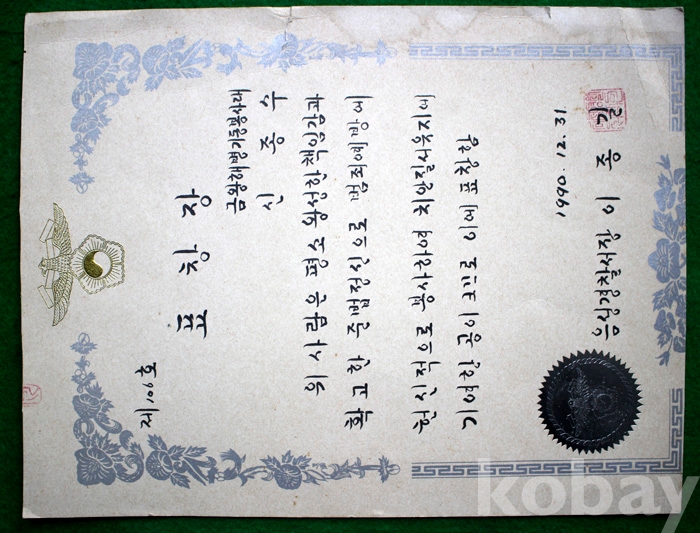 제106호
표창장
금왕해병기동봉사대
신종수
위 사람은 평소 왕성한 책임감과
확고한 준법정신으로 범죄예방에
헌신적으로 봉사하여 치안질서유지에
기여한 공이 크므로 이에 표창함
1990. 12. 31.
음성경찰서장 이종길
kobay